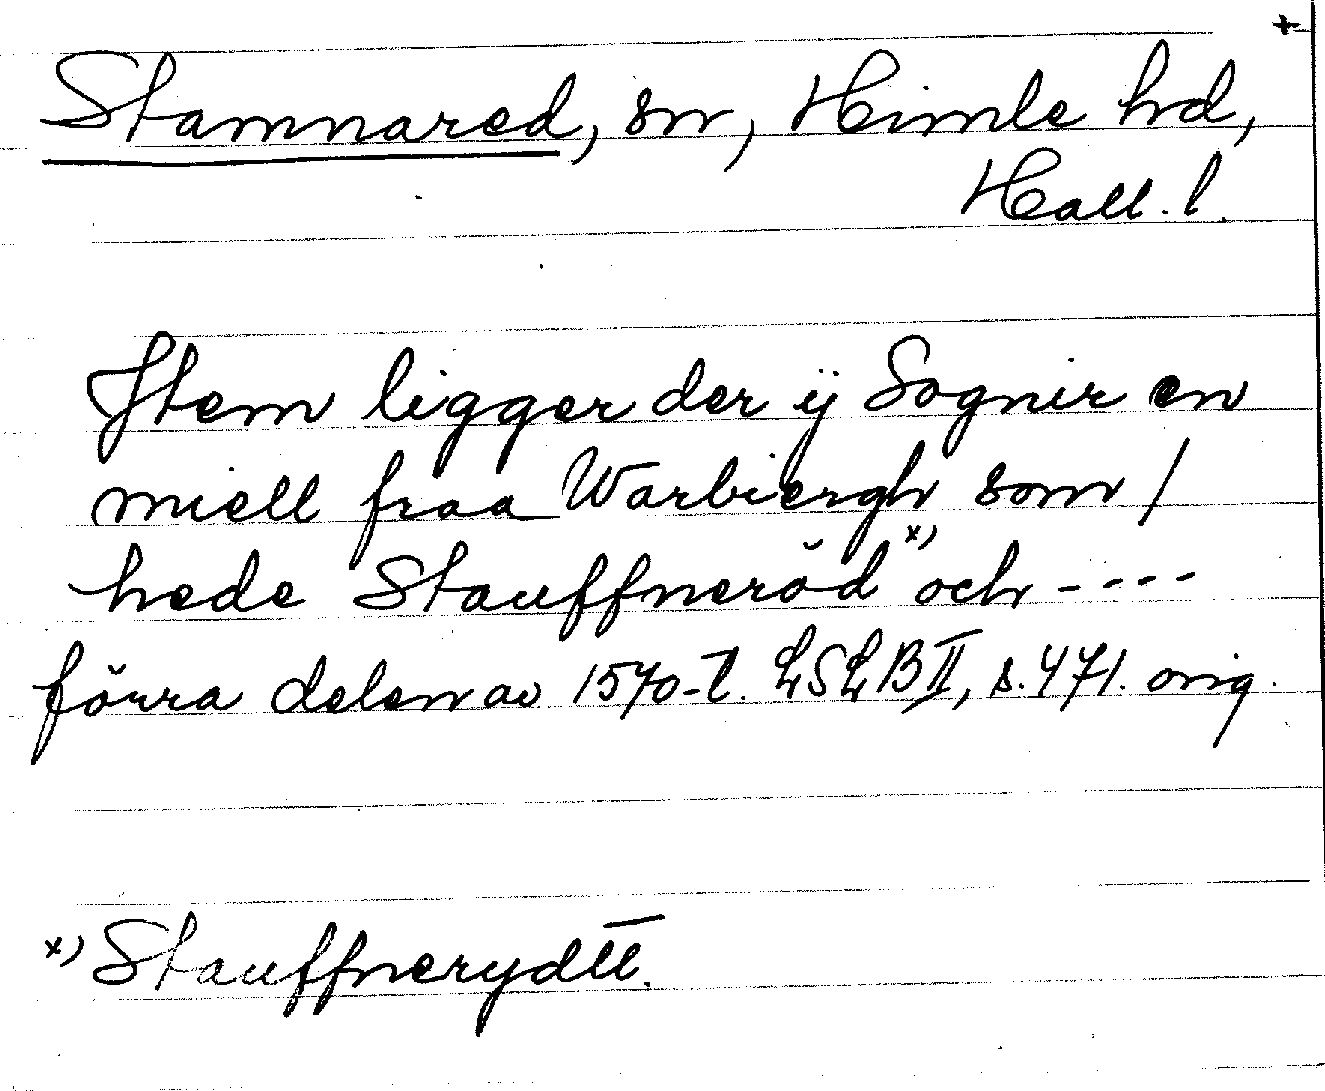 +
Stamnared, sn, Himle hd,
Hall. l.
Jtem ligger der ij Sognir en
miell fraa Warbiergh som /
hede Stauffneröd x) och ----
förra delen av 1570-t. LSLB II, s. 471. orig.
x) Stauffnerydtt.